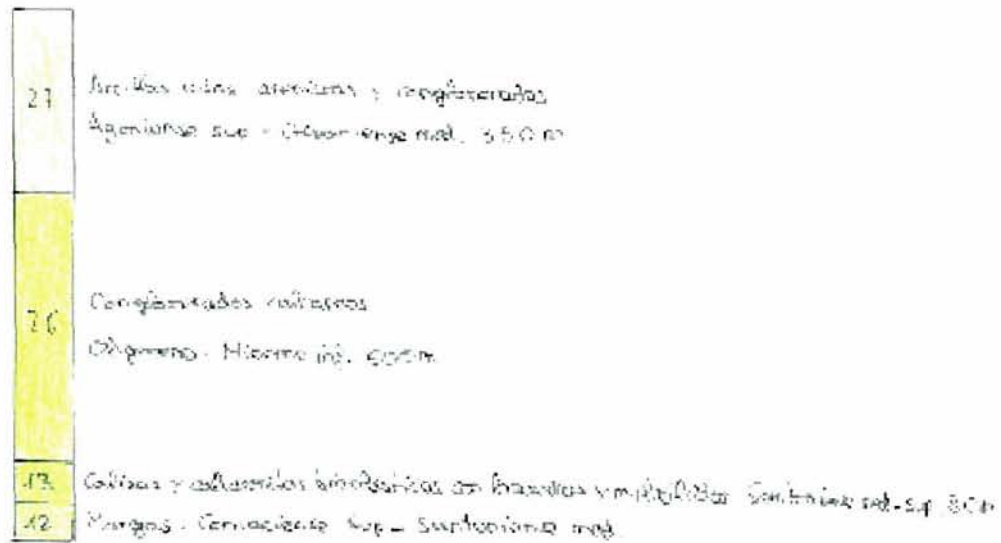 27
Arcillas rojas areniscas y conglomerados
Ageniense sup - med. 350 m
26
Conglomerados calcáreos
Oligoceno - Mioceno inf. 500 m
13 Calizas y calcarenitas bioclásticas con y Santoniense med-sup 80 m
12 Margas. Coniaciense sup - Santoniense med.